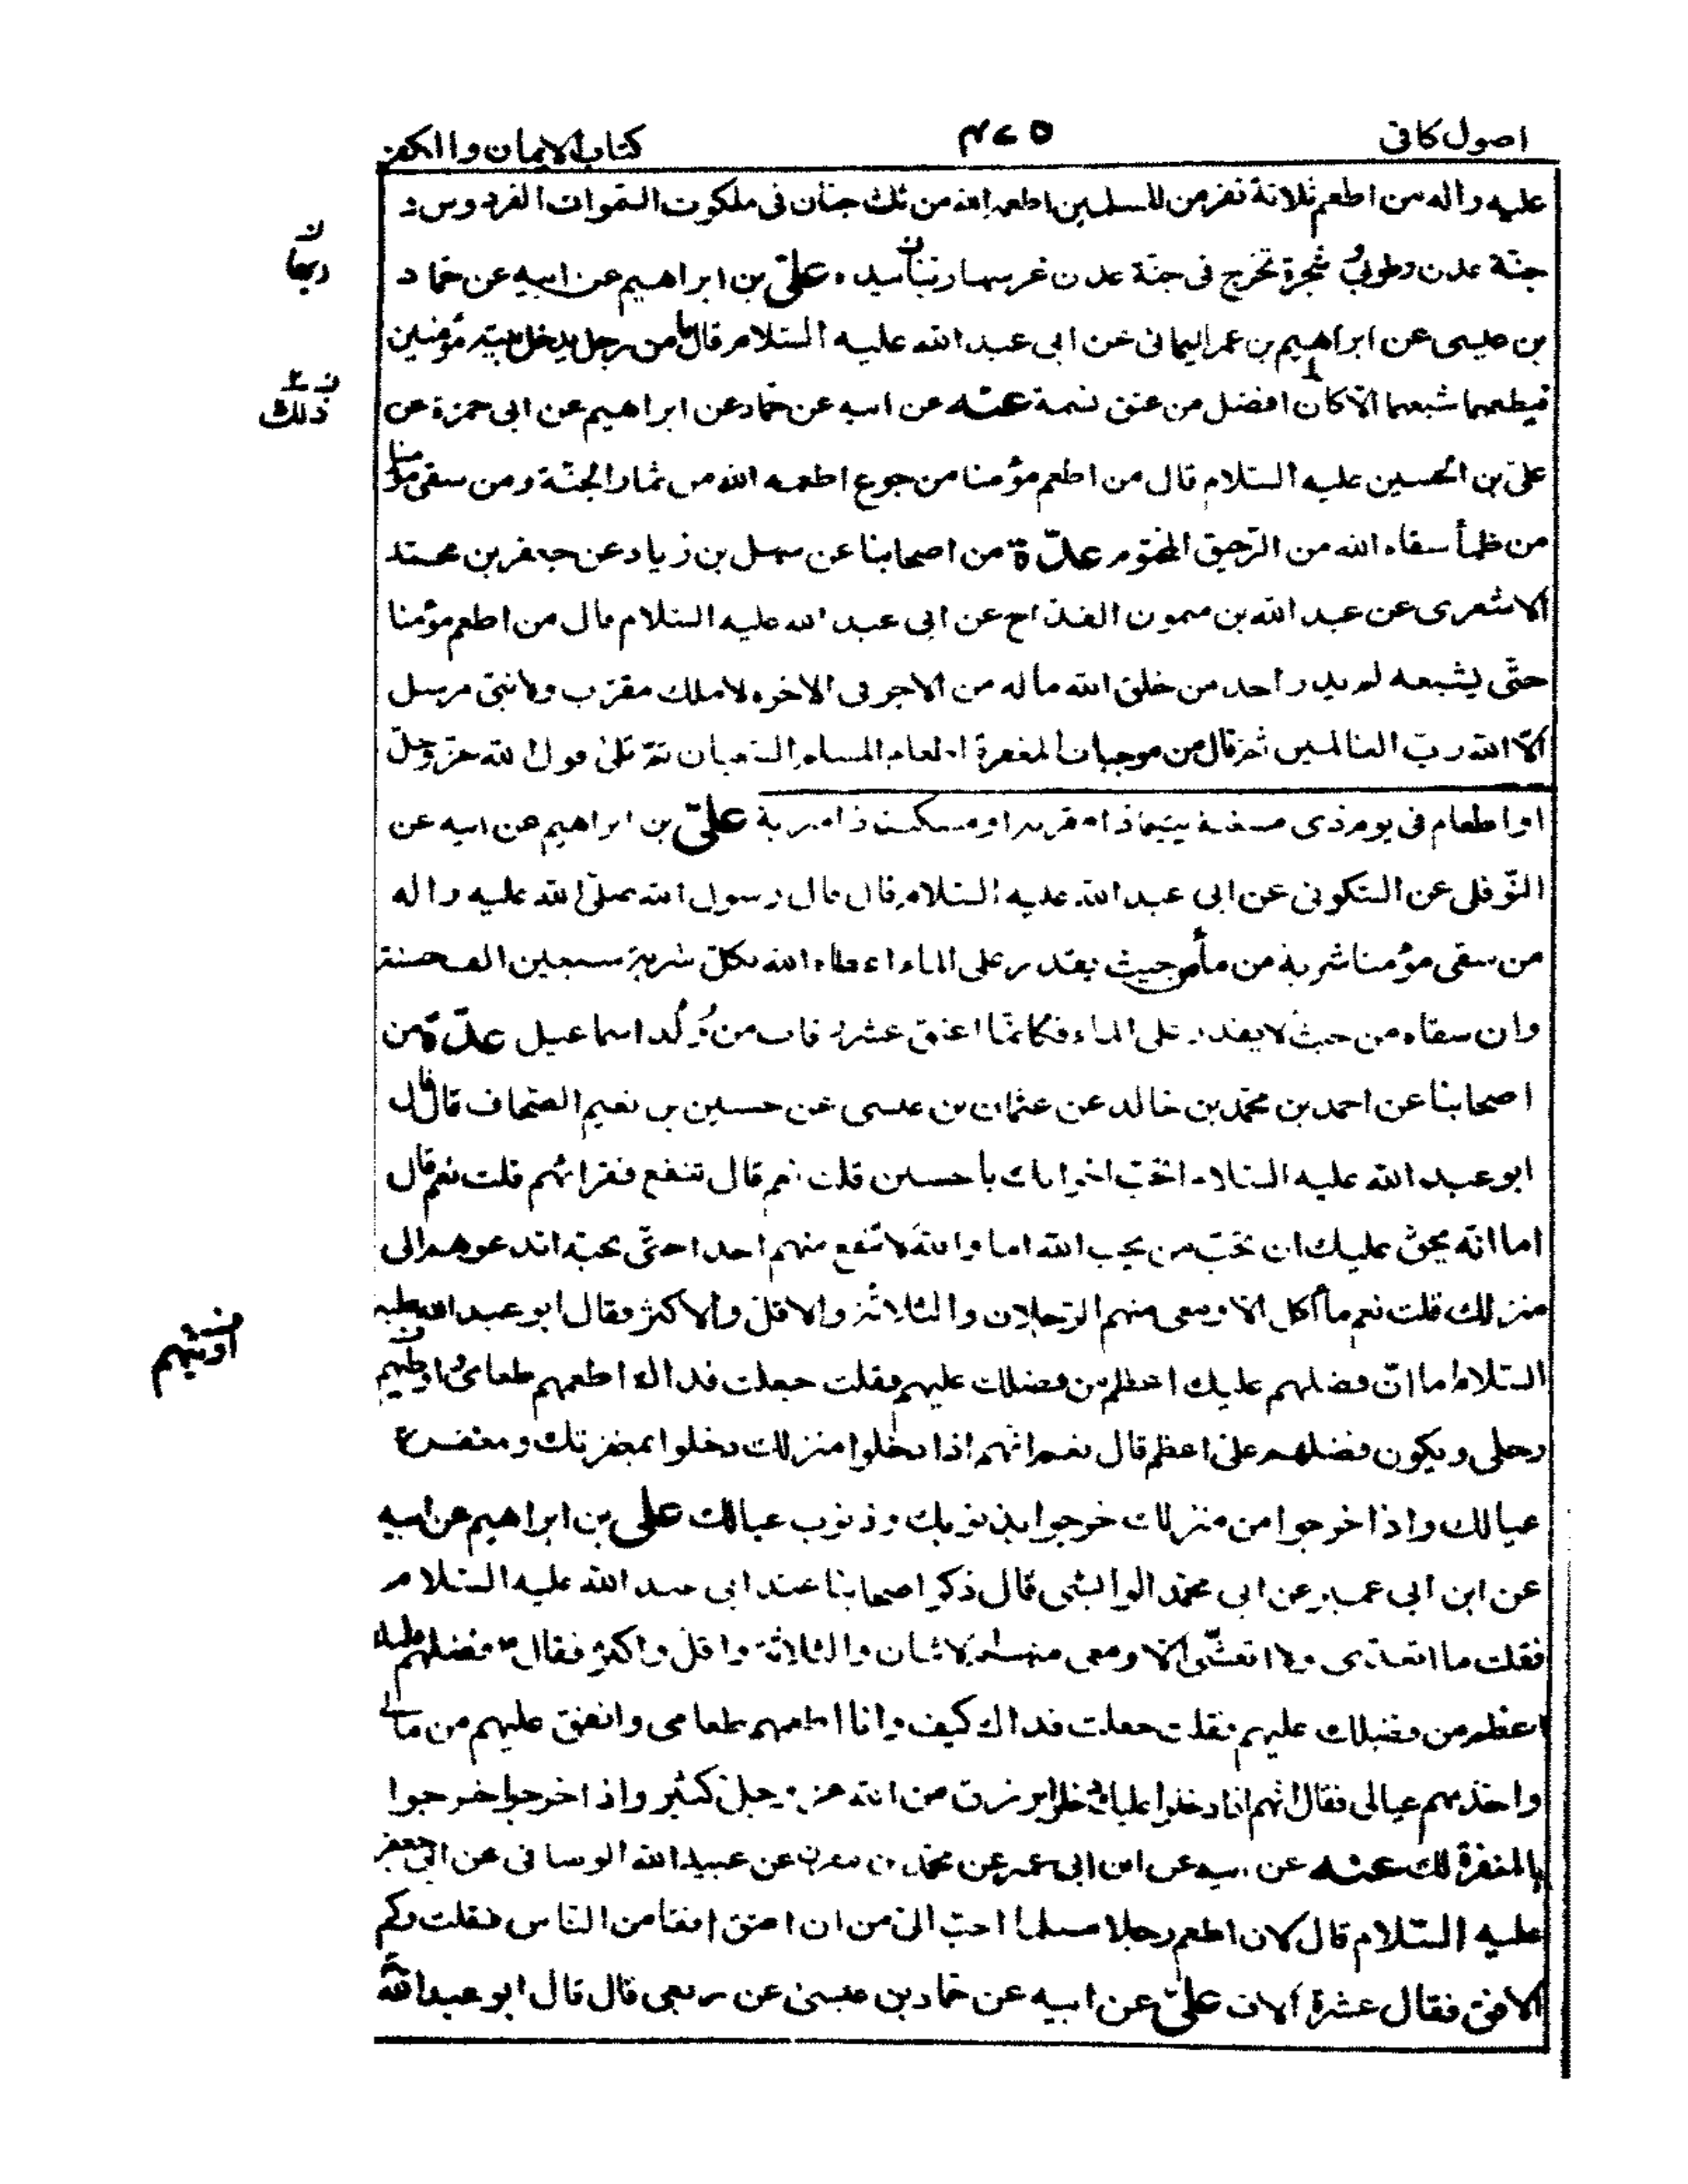 اصول كافى
٤٢٥
كتاب الايمان والكفر
عليه واله من اطعم ثلاثة نفر من المسلمين اطعمه الله من ثلث جنان فى ملكوت السّموات الفردوس و
جنّة عدن وطوبىٰ شجرة تخرج فى جنّة عدن غرسها ربّنا بيده علىّ بن ابراهيم عن ابيه عن حمّاد
بن عيسى عن ابراهيم بن عمر اليمانى عن ابى عبد الله عليه السّلام قال ما من رجل يدخل بيته مؤمنين
فيطعمهما شبعهما الّا كان افضل من عتق نسمة عنه عن ابيه عن حمّاد عن ابراهيم عن ابى حمزة عن
علىّ بن الحسين عليه السّلام قال من اطعم مؤمنا من جوع اطعمه الله من ثمار الجنّة ومن سقى مؤمنا
من ظمأ سقاه الله من الرّحيق المختوم عدّة من اصحابنا عن سهل بن زياد عن جعفر بن محمّد
الاشعرى عن عبد الله بن ميمون القدّاح عن ابى عبد الله عليه السّلام قال من اطعم مؤمنا
حتّى يشبعه لم يدر احد من خلق الله ماله من الاجر فى الاخرة لا ملك مقرّب ولا نبىّ مرسل
الّا الله ربّ العالمين ثم قال من موجبات المغفرة اطعام المسلم السّغبان ثمّ تلى قول الله عزّ وجلّ
او اطعام فى يوم ذى مسغبة يتيما ذا مقربة او مسكينا ذا متربة علىّ بن ابراهيم عن ابيه عن
النّوفلى عن السّكونى عن ابى عبد الله عليه السّلام قال قال رسول الله صلّى الله عليه واله
من سقى مؤمنا شربة من ماء من حيث يقدر على الماء اعطاه الله بكلّ شربة سبعين الف حسنة
وان سقاه من حيث لا يقدر على الماء فكانّما اعتق عشر رقاب من وُلد اسماعيل عدّة من
اصحابنا عن احمد بن محمّد بن خالد عن عثمان بن عيسى عن حسين بن نعيم الصّحاف قال قال
ابو عبد الله عليه السّلام اتحبّ اخوانك يا حسين قلت نعم قال تنفع فقرائهم قلت نعم قال
اما انّه يحقّ عليك ان تحبّ من يحب الله اما والله لا تنفع منهم احدا حتّى تحبّه اتدعوهم الى
منزلك قلت نعم ما آكل الّا ومعى منهم الرّجلان والثلاثة والاقلّ والاكثر فقال ابو عبد الله عليه
السّلام اما انّ فضلهم عليك اعظم من فضلك عليهم فقلت جعلت فداك اطعمهم طعامى و اوطئهم
رحلى ويكون فضلهم علىّ اعظم قال نعم انّهم اذا دخلوا منزلك دخلوا بمغفرتك ومغفرة
عيالك واذا خرجوا من منزلك خرجوا بذنوبك وذنوب عيالك على بن ابراهيم عن ابيه
عن ابن ابى عمير عن ابى محمّد الوابشى قال ذكر اصحابنا عند ابى عبد الله عليه السّلام
فقلت ما اتغدّى ولا اتعشّى الّا ومعى منهم الاثنان والثلاثة واقلّ واكثر فقال ٤ فضلهم عليك
اعظم من فضلك عليهم فقلت جعلت فداك كيف وانا اطعمهم طعامى وانفق عليهم من مالى
واخدمهم عيالى فقال انّهم اذا دخلوا عليك دخلوا برزق من الله عزّ وجلّ كثير واذا خرجوا خرجوا
بالمغفرة لك عنه عن ابيه عن ابن ابى عمير عن محمّد بن مقرن عن عبيد الله الوصافى عن ابى جعفر
عليه السّلام قال لان اطعم رجلا مسلما احبّ الىّ من ان اعتق افقا من النّاس فقلت وكم
الافق فقال عشرة آلاف علىّ عن ابيه عن حمّاد بن عيسى عن ربعى قال قال ابو عبد الله
ن
ربنا
ن ٢
ذلك
اوطئهم